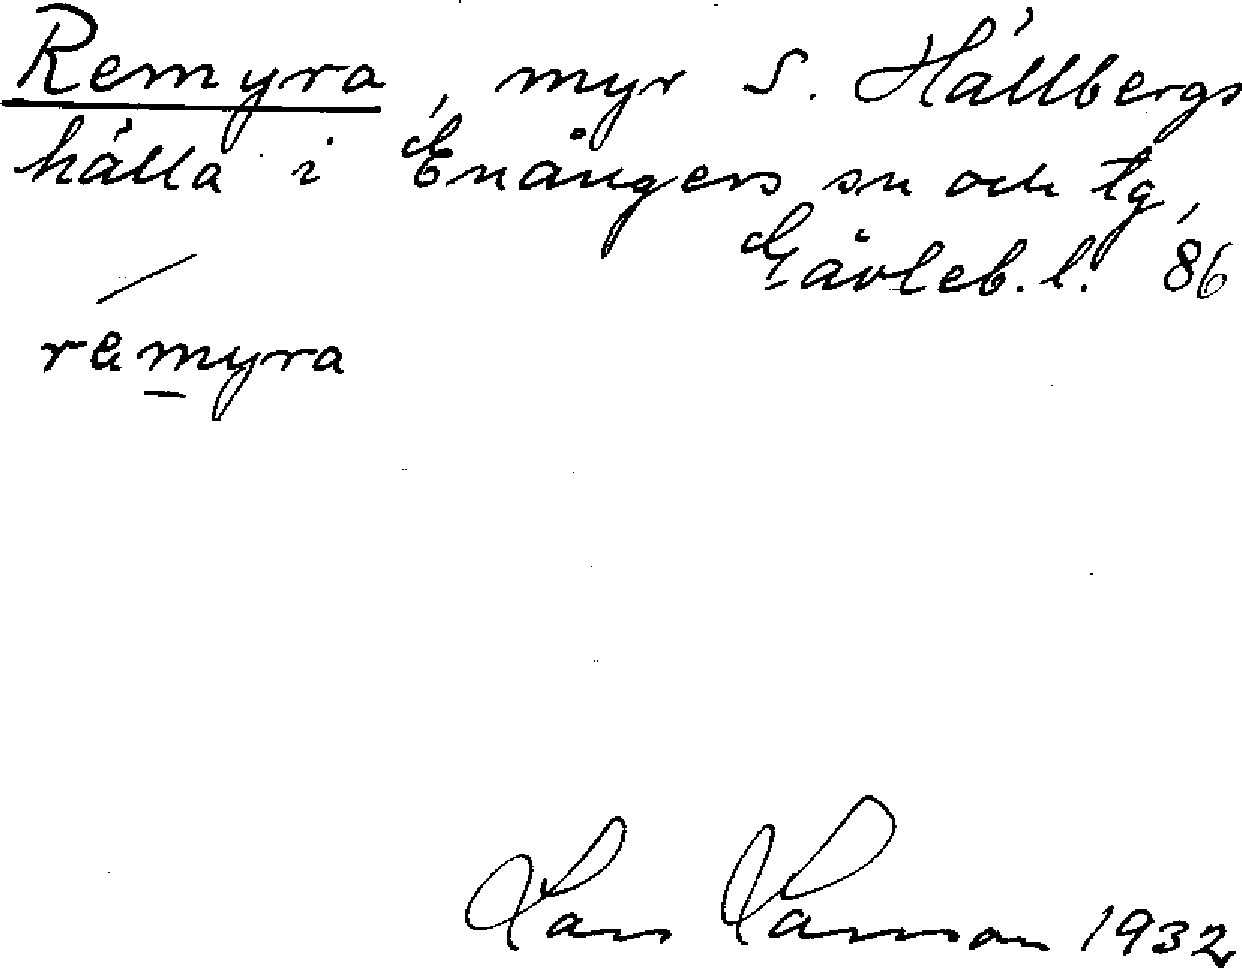 Remyra, myr S. Hällbergs
hälla i Enångers sn och tg,
Gävleb. l. 86
remyra
Lars Larsson 1932